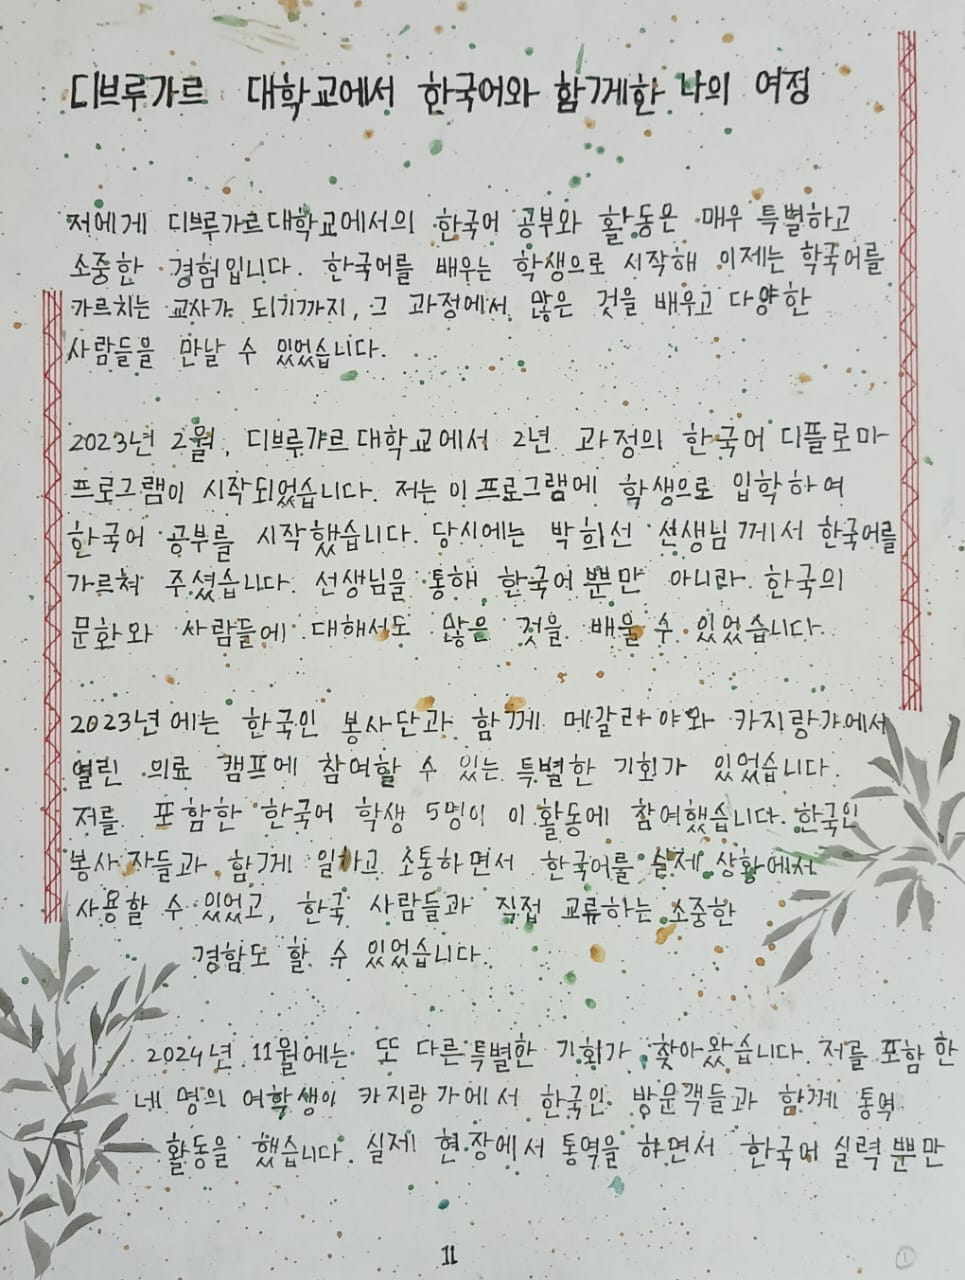 디브루가르 대학교에서 한국어와 함께한 나의 여정
저에게 디브루가르대학교에서의 한국어 공부와 활동은 매우 특별하고
소중한 경험입니다. 한국어를 배우는 학생으로 시작해 이제는 학국어를
가르치는 교사가 되기까지, 그 과정에서 많은 것을 배우고 다양한
사람들을 만날 수 있었습니다.
2023년 2월, 디브루갸르대학교에서 2년 과정의 한국어 디플로마
프로그램이 시작되었습니다. 저는 이 프로그램에 학생으로 입학하여
한국어 공부를 시작했습니다. 당시에는 박희선 선생님께서 한국어를
가르쳐 주셨습니다. 선생님을 통해 한국어뿐만 아니라 한국의
문화와 사람들에 대해서도 많은 것을 배울 수 있었습니다.
2023년에는 한국인 봉사단과 함께 메갈라야와 카지랑가에서
열린 의료 캠프에 참여할 수 있는 특별한 기회가 있었습니다.
저를 포함한 한국어 학생 5명이 이 활동에 참여했습니다. 한국인
봉사자들과 함께 일하고 소통하면서 한국어를 실제 상황에서
사용할 수 있었고, 한국 사람들과 직접 교류하는 소중한
경함도 할 수 있었습니다.
2024년 11월에는 또 다른 특별한 기회가 찾아왔습니다. 저를 포함한
네 명의 여학생이 카지랑가에서 한국인 방문객들과 함께 통역
활동을 했습니다. 실제 현장에서 통역을 하면서 한국어 실력뿐만
11
1